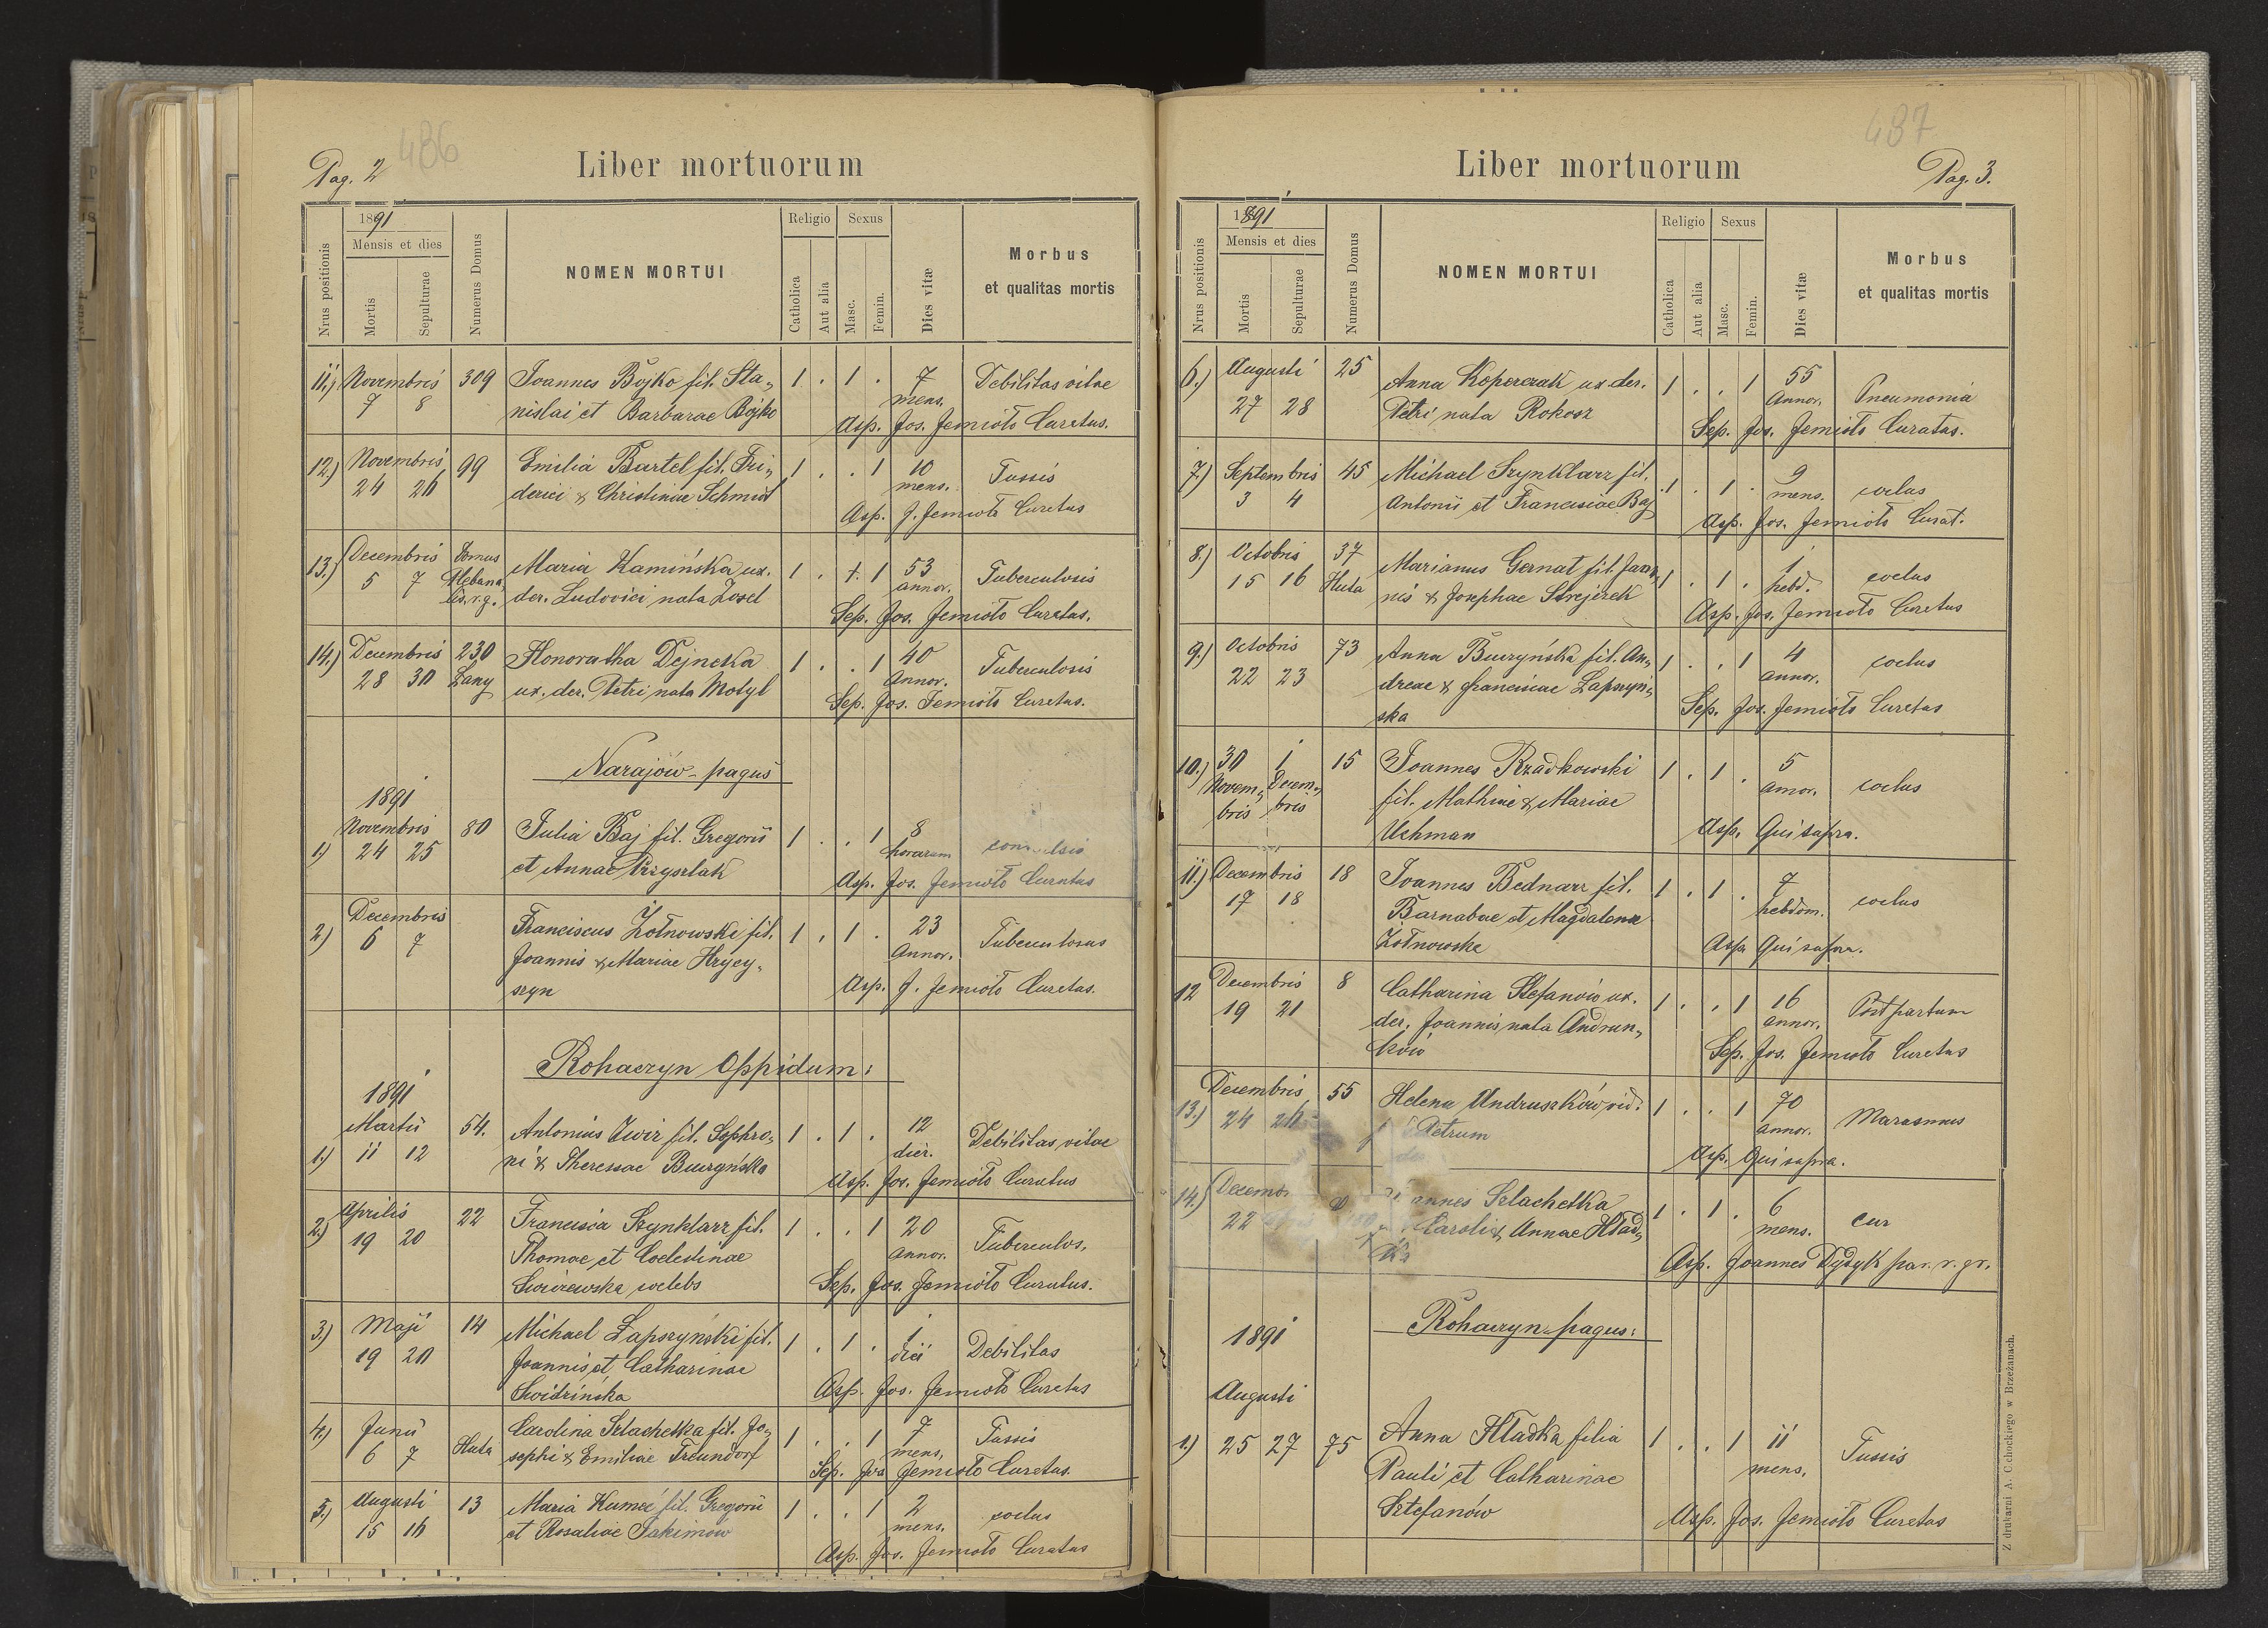 486
Pag. 2
Liber mortuorum
Nrus positionis
1891
Mensis et dies
Mortis
Sepulturae
Numerus Domus
NOMEN MORTUI
Religio
Catholica
Aut alia
Sexus
Masc.
Femin.
Dies vitæ
Morbus
et qualitas mortis
11.) Novembris 309 Joannes Bojko fil. Sta„ 1 . 1 . 7 Debilitas vitae
7 8 nislai et Barbarae Bojko mens.
Asp. Jos. Jemioło Curatus.
12.) Novembris 99 Emilia Bartel fil. Fri„ 1 . . 1 10 Tussis
24 26 derici & Christinae Schmidt mens.
Asp. J. Jemioło Curatus
13.) Decembris Domus Maria Kamińska ux. 1 . 1 53 Tuberculosis
5 7 Plebana der. Ludovici nata Zosel annor.
lis r. g. Sep. Jos. Jemioło Curatus.
14.) Decembris 230 Honoratha Dejneka 1 . . 1 40 Tuberculosis
28 30 Łany ux. der. Petri nata Motyl annor.
Sep. Jos. Jemioło Curatus.
Narajów-pagus
1891
Novembris 80 Julia Baj fil. Gregorii 1 . . 1 8
1) 24 25 et Annae Przyszlak horarum
Asp. Jos. Jemioło Curatus
2) Decembris Franciscus Żołnowski fil. 1 . 1 . 23 Tuberculosus
6 7 Joannis & Mariae Hrycy„ Annor.
szyn Asp. J. Jemioło Curatus.
Rohaczyn Oppidum:
1891
Martii 54. Antonius Zwir fil. Sophro„ 1 . 1 . 12 Debilitas vitae
1) 11 12 ni & Theressae Buczyńska dier.
Asp. Jos. Jemioło Curatus
2) Aprilis 22 Francisca Szynklarz fil. 1 . . 1 20 Tuberculos.
19 20 Thomae et Coelestinae annor.
Swirzewska coelebs Sep. Jos. Jemioło Curatus.
3) Maji 14 Michael Łapszyński fil. 1 . 1 . 1 Debilitas
19 20 Joannis et Catharinae diei
Swidrińska Asp. Jos. Jemioło Curatus
4.) Junii Huta Carolina Szlachetka fil. Jo„ 1 . . 1 7 Tussis
6 7 sephi & Emiliae Freundorf mens.
Sep. Jos Jemioło Curatus.
5.) Augusti 13 Maria Kumeć fil. Gregorii 1 . . 1 2 coctus
15 16 et Rosaliae Jakimow mens.
Asp. Jos. Jemioło Curatus
487
Liber mortuorum
Pag. 3.
Nrus positionis
1891
Mensis et dies
Mortis
Sepulturae
Numerus Domus
NOMEN MORTUI
Religio
Catholica
Aut alia
Sexus
Masc.
Femin.
Dies vitæ
Morbus
et qualitas mortis
6.) Augusti 25 Anna Koperczak ux. der. 1 . . 1 55 Pneumonia
27 28 Petri nata Rokosz Annor.
Sep. Jos. Jemioło Curatus.
7.) Septembris 45 Michael Szynklarz fil. 1 . 1 . 9 coctus
3 4 Antonii et Franciscae Baj mens.
Asp. Jos. Jemioło Curat.
8.) Octobris 37 Marianus Gernat fil. Joan„ 1 . 1 . 1 coctus
15 16 Huta nis & Josephae Strejczek hebd.
Asp. Jos. Jemioło Curatus
9.) Octobris 73 Anna Buczyńska fil. An„ 1 . . 1 4 coctus
22 23 dreae & Franciscae Łapszyń„ annor.
ska Sep. Jos. Jemioło Curatus
10.) 30 1 15 Joannes Rzadkowski 1 . 1 . 5 coctus
Novem„ Decem„ fil. Mathiae & Mariae annor.
bris bris Uchman Asp. Qui supra.
11.) Decembris 18 Joannes Bednarz fil. 1 . 1 . 7 coctus
17 18 Barnabae et Magdalenae hebdom.
Żołnowska Asp Qui supra.
12 Decembris 8 Catharina Stefanów ux. 1 . . 1 16 Post partum
19 21 der. Joannis nata Andrun„ annor.
ków Sep. Jos. Jemioło Curatus
13.) Decembris 55 Helena Andruszków vid. 1 . . 1 70 Marasmus
24 26 Petrum annor.
Asp. Qui supra.
14.) Decemb Szlachetka 1 . 1 . 6
22 Caroli & Annae Hład„ mens.
Asp. Joannes Dydyk par. r. gr.
Rohaczyn-pagus:
1891
Augusti
1.) 25 27 75 Anna Hładka filia 1 . . 1 11 Tussis
Pauli et Catharinae mens.
Sztefanów Asp. Jos. Jemioło Curatus
Z drukarni A. Cichockiego w Brzeżanach.